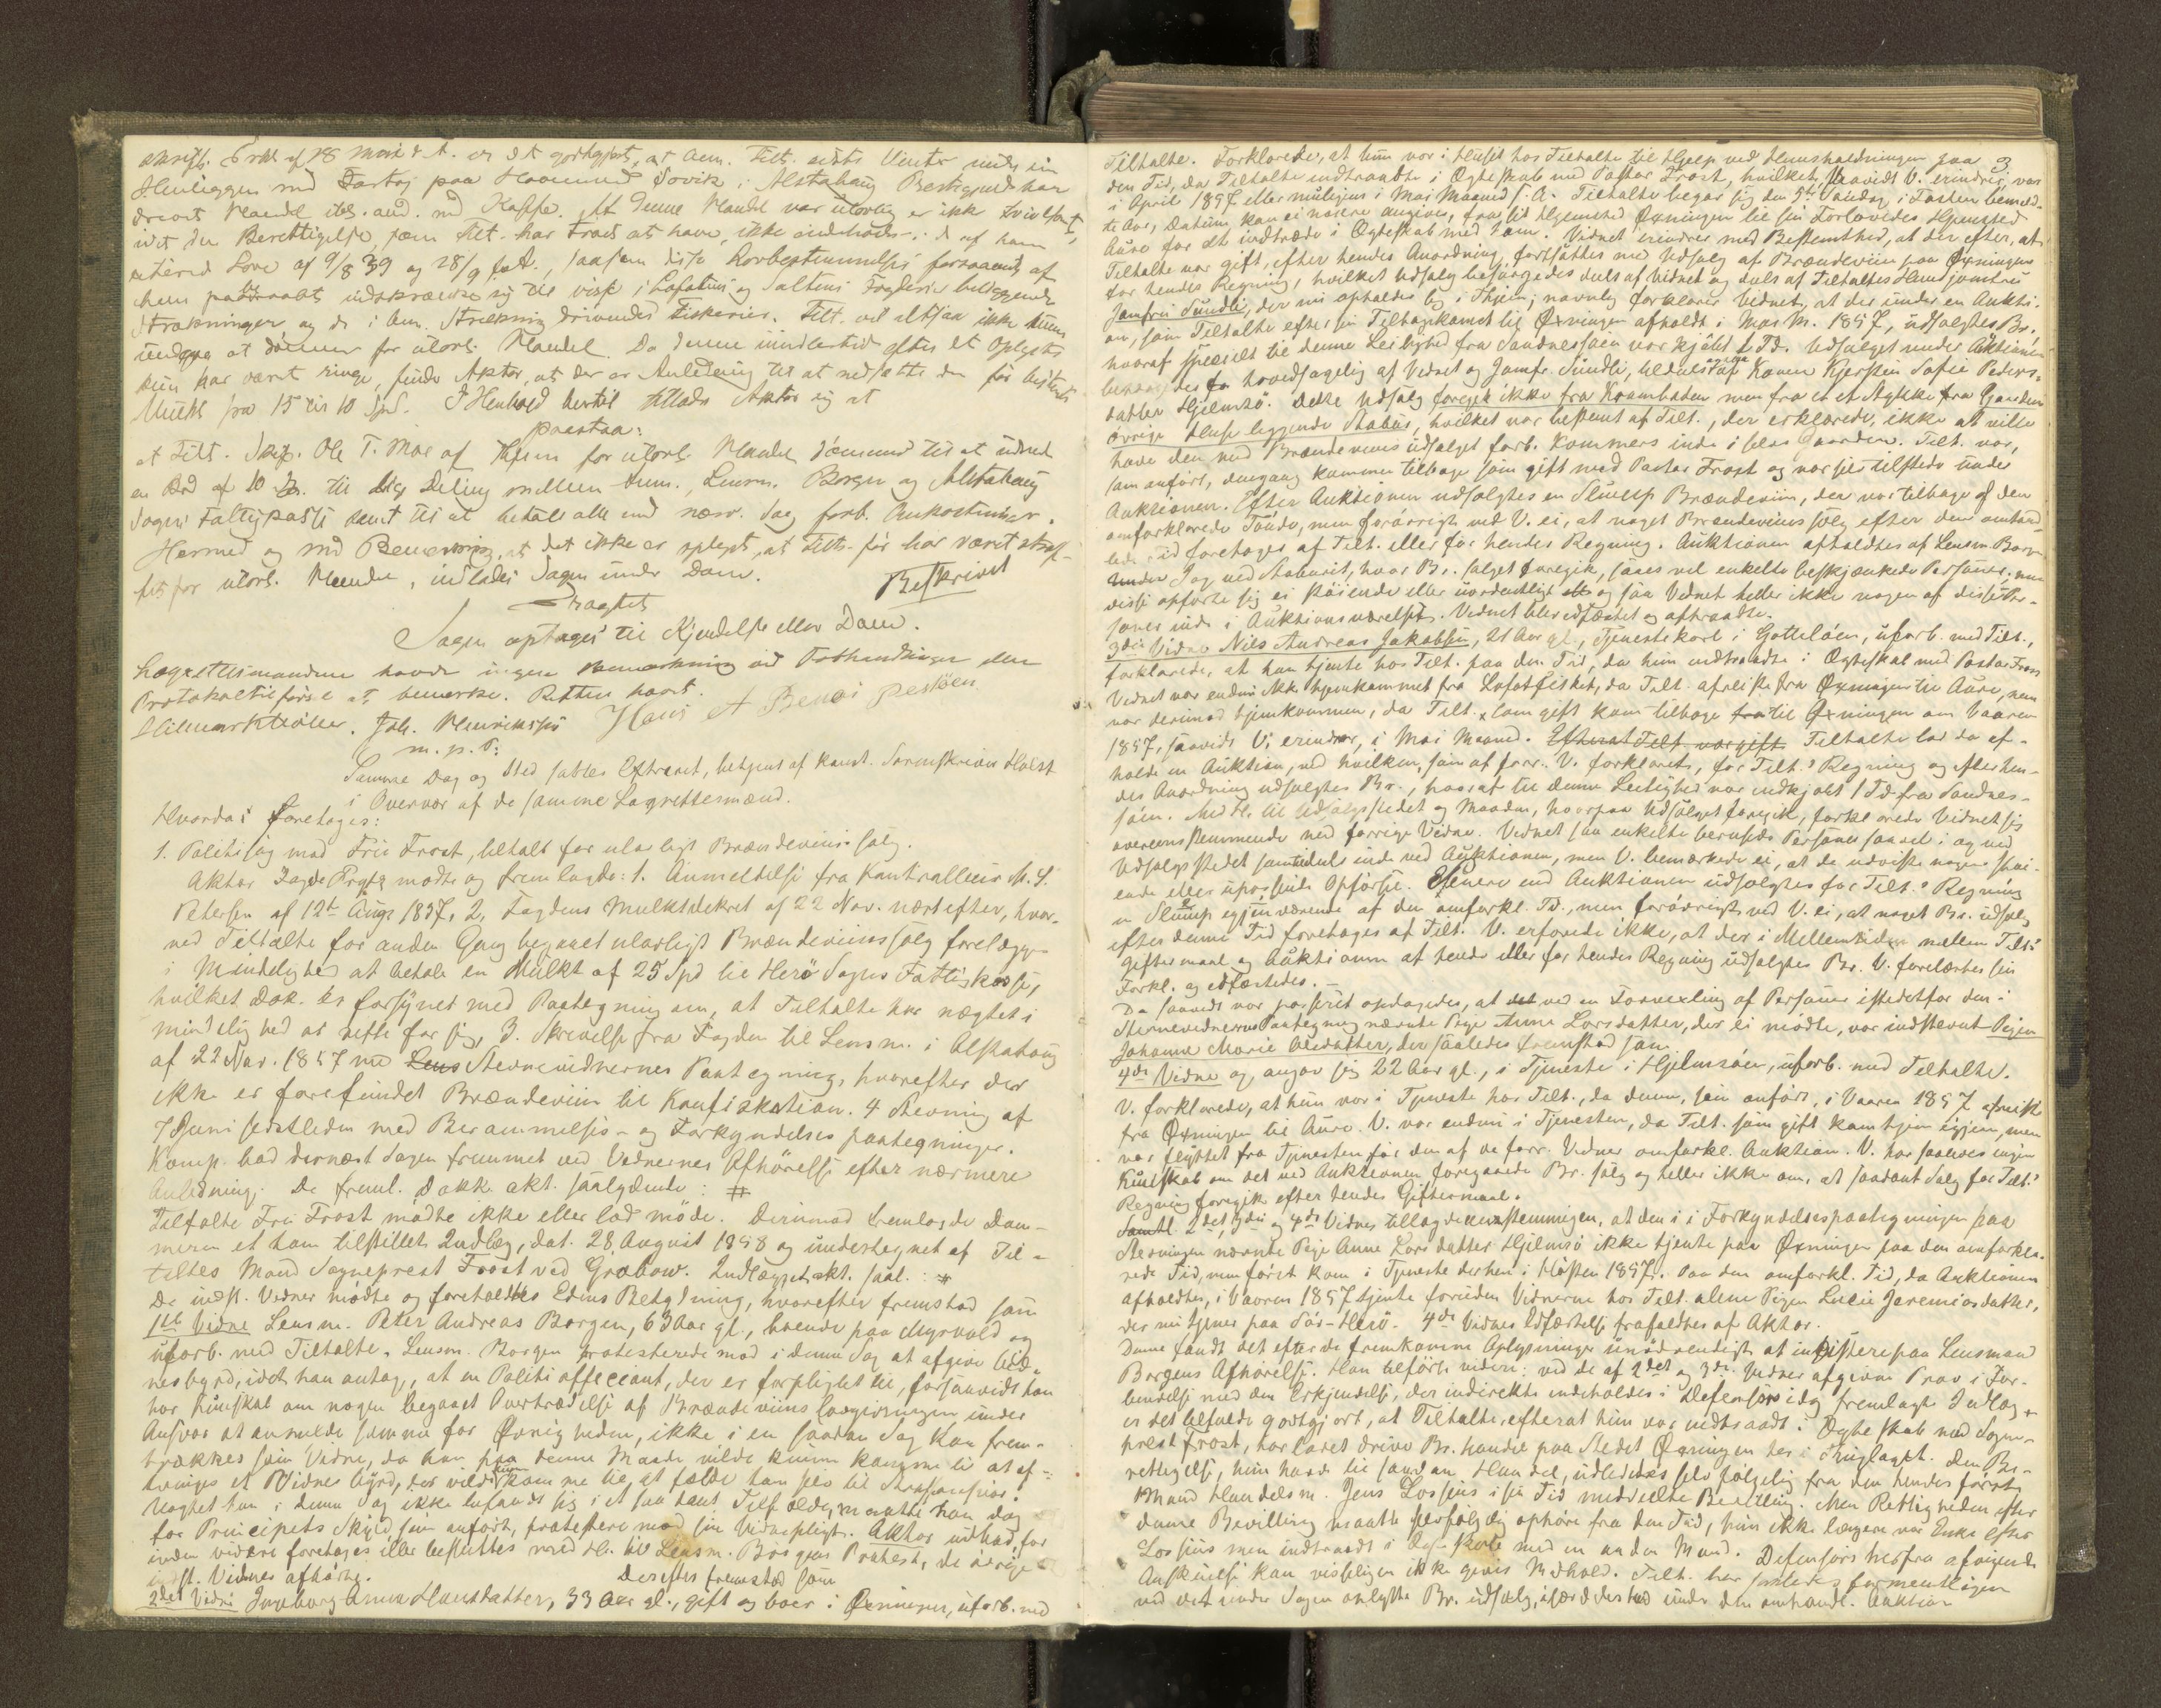 Henliggen med Fartøj paa Haarund Søvik i Alstahaug Præstegjeld har
drevet Handel ibl. and. med Kaffe. At denne Handel var ulovlig er ikke tvivlsomt,
idet den Berettigelse, som Tilt. har troet at have, ikke indeholdes i de af ham
citered Love af 9/8 39 og 28/9 s. A., saasom disse Lovbestemmelser forsaavidt af
ham paaberaabt indskrænke sig til visse i Lofotens og Saltens Fogderier beliggende
Strækninger og de i Strækning drivendes Fiskerier. Tilt. vil altsaa ikke kunne
undgaa at dømmes for ulovl. Handel. Da denne imidlertid efter det Oplyste
kun har været ringe, finder Aktor, at der er Anledning til at nedsætte den før besluttede
Mulkt fra 15 til 10 Spd. I Henhold hertil tillader Aktor sig at
paastaa:
at Tilt. Ole T. Moe af for ulovl. Handel dømmes til at udrede
en Bod af 10 Spd. til lige Deling mellem Anm., Lensm. Borgen og Alstahaug
Sogns Fattigkasse samt til at betale alle med nærv. Sag forb. Omkostninger.
Hermed og med Bemærkning, at det ikke er oplyst, at Tilt. før har været straf-
fet for ulovl. Handel, indlades Sagen under Dom.
Beskrivet
Eragtet
Sagen optages til Kjendelse eller Dom.
Lagrettesmændene havde ingen Bemærkning ved Forhandlingen eller
Protokoltilførsel at bemærke. Retten hævet.
Joh. Henriksen Hans A
m. p. P.
Samme Dag og Sted sattes Extraret, betjent af konst. Sorenskriver Holst
i Overvær af de samme Lagrettesmænd.
Hvorda foretoges:
1. Politisag mod Fru Frost, tiltalt for ulovligt Brændeviins salg.
Aktor mødte og fremlagde: 1. Anmeldelse fra Kontrolleur M. S.
Petersen af 12te Aug. 1857, 2, Fogdens Mulktdekret af 22 Nov. næstefter, hvor-
ved Tiltalte for anden Gang begaaet ulovligt Brændeviinssalg forelægges
i Mindelighed at betale en Mulkt af 25 Spd til Herø Sogns Fattigkasse,
hvilket Dok. er forsynet med Paategning om, at Tiltalte har nægtet i
mindelighed at rette for sig, 3. Skrivelse fra Fogden til Lensm. i Alstahoug
af 22 Nov. 1857 med Stevnevidnernes Paategning, hvorefter der
ikke er forefundet Brændeviin til Konfiskation. 4 Stevning af
7 Juni sidstleden med Berammelses- og Forkyndelses paategninger.
Komp. bad dernæst Sagen fremmet ved Vidnernes Afhørelse efter nærmere
Anledning. De freml. Dokk. akt. saalydende: #
Tiltalte Fru Frost mødte ikke eller lod møde. Derimod fremlagde Dom-
meren et ham tilstillet Indlæg, dat. 28 August 1858 og undertegnet af Til-
taltes Mand Sogneprest Frost ved Grabow. Indlægget akt. saal.: #
De indst. Vidner mødte og foreholdtes Edens Betydning, hvorefter fremstod som
1ste Vidne Lensm. Peter Andreas Borgen, 63 Aar gl., boende paa Myrvold og
uforb. med Tiltalte. Lensm. Borgen protesterede mod i denne Sag at afgive Vid-
nesbyrd, idet han antog, at en Politi officiant, der er forpligtet til, forsaavidt han
har Kundskab om nogen begaaet Overtrædelse af Brændeviins lovgivningen under
Ansvar at anmelde samme for Øvrigheden, ikke i en saadan Sag kan frem-
trækkes som Vidne, da han paa denne Maade vilde kunne komme til at af-
tvinges et Vidnes byrd, der vilde kunne komme til, at fælde ham selv til Strafansvar.
Uagtet han i denne Sag ikke befandt sig i et saadant Tilfælde, maatte han dog
for Principets Skyld som anført, protestere mod sin Vidnepligt. Aktor udbad, før
inden videre foretoges eller besluttes med H. til Lensm. Borgens Protest, de øvrige
indst. Vidner afhørte.
Derefter fremstod som
2det Vidne Ingeborg Anna Hansdatter, 33 Aar gl., gift og boer i Øxningen, uforb. med
3
Tiltalte. Forklarede, at hun var i Huset hos Tiltalte til Hjelp ved Huusholdningen paa
den Tid, da Tiltalte indtraadte i Ægteskab med Pastor Frost, hvilket, saavidt V. erindrer, var
i April 1857 eller muligens i Mai Maaned s. A. Tiltalte begav sig den 5te Søndag i Fasten bemeld-
te Aar, Datum kan ei nøiere angives, fra sit Hjemsted Øxningen til sin Forlovedes Hjemsted
Aure for at indtræde i Ægteskab med ham. Vidnet erindrer med Bestemthed, at der efter, at
Tiltalte var gift, efter hendes Anordning fortsattes med Udsalg af Brændeviin paa Øxningen
for hendes Regning, hvilket Udsalg besørgedes dels af Vidnet og dels af Tiltaltes Huusjomfru
Jomfru Sundli, der nu opholder sig i Thjem; navnlig forklarer Vidnet, at der under en Aukti-
on, som Tiltalte efter sin Tilbagekomst til Øxningen afholdt i Mai M. 1857, udsolgtes Br.,
hvoraf specielt til denne Leilighed fra Sandnessøen var kjøbt 1 Td. Udsalget under Auktionen
besørgedes hovedsagelig af Vidnet og Jomfr. Sundli, tildeels ogsaa af Konen Kjersten Sofie Peders-
datter Hjelmsø. Dette Udsalg foregik ikke fra Krambaden men fra et et Stykke fra Gaardens
øvrige Huse liggende Stabur, hvilket var bestemt af Tilt., der erklærede, ikke at ville
have den med Brændeviins udsalget forb. Kommers inde i selve Gaarden. Tilt. var,
som anført, dengang kommen tilbage som gift med Pastor Frost og var selv tilstede under
Auktionen. Efter Auktionen udsolgtes en Slump Brændeviin, der var tilbage af den
omforklarede Tønde, men forøvrigt ved V. ei, at noget Brændeviins salg efter den omhand-
lede Tid foretoges af Tilt. eller for hendes Regning. Auktionen afholdtes af Lensm. Borgen
ved Staburet, hvor Br. salget foregik, saaes vel enkelte beskjænkede Personer, men
disse opførte sig ei støiende eller uordentligt og saa Vidnet heller ikke nogen af disse Per-
soner inde i Auktionsværelset. Vidnet blev edfæstet og aftraadte.
3die Vidne Nils Andreas Jakobsen, 21 Aar gl., Tjenestekarl i Gotteløen, uforb. med Tilt.,
forklarede, at han tjente hos Tilt. paa den Tid, da hun indtraadte i Ægteskab med Pastor Frost
Vidnet var endnu ikke hjemkommet fra Lofotfisket, da Tilt. afreiste fra Øxningen til Aure, men
var derimod hjemkommen, da Tilt. som gift kom tilbage til Øxningen om Vaaren
1857, saavidt V. erindrer, i Mai Maaned. Efterat Tilt. var gift Tiltalte lod da af-
holde en Auktion, ved hvilken, som af forr. V. forklaret, for Tilt.s Regning og efter hen-
des Anordning udsolgtes Br., hvoraf til denne Leilighed var indkjøbt 1 Td. fra Sandnes-
søen. Med H. til Udsalgsstedet og Maaden, hvorpaa Udsalget foregik, forklarede Vidnet sig
overensstemmende med forrige Vidne. Vidnet saa enkelte berusede Personer saavel i og ved
Udsalgsstedet samt tildels inde ved Auktionen, men V. bemærkede ei, at de udviste nogen støi-
ende eller upassende Opførsel. Senere end Auktionen udsolgtes for Tilt.s Regning
en Slump igjenværende af den omforkl. Td., men forøvrigt ved V. ei, at noget Br. udsalg
efter denne Tid foretoges af Tilt. V. erfarede ikke, at der i Mellemtiden mellem Tilts
Giftermaal og Auktionen af hende eller for hendes Regning udsolgtes Br. V. forelæstes sin
Forkl. og edfæstedes.
Da saavidt var passeret opdagedes, at det ved en Forvexling af Personer istedetfor den i
Stevnevidnernes Paategning nævnte Pige Anne Larsdatter, der ei mødte, var indstevnt Pigen
Johanne Marie Olsdatter, der saaledes fremstod som
4de Vidne og angav sig 22 Aar gl., i Tjeneste i Hjelmsøen, uforb. med Tiltalte.
V. forklarede, at hun var i Tjeneste hos Tilt., da denne, som anført, i Vaaren 1857 afreiste
fra Øxningen til Aure. V. var endnu i Tjenesten, da Tilt. som gift kom hjem igjen, men
var flyttet fra Tjenesten før den af de forr. Vidner omforkl. Auktion. V. har saaledes ingen
Kundskab om det ved Auktionen foregaaede Br. salg og heller ikke om, at saadant Salg for Tilt.s
Regning foregik efter hendes Giftermaal.
Samtl. 2det, 3die og 4de Vidnes tillagde overensstemmigen, at den i i Forkyndelsespaategningen paa
Stevningen nævnte Pige Anne Lars datter Hjelmsø ikke tjente paa Øxningen paa den omforkla-
rede Tid, men først kom i Tjeneste derhen i Høsten 1857. Paa den omforkl. Tid, da Auktionen
afholdtes, i Vaaren 1857 tjente foruden Vidnerne hos Tilt. alene Pigen Lucie Jeremiasdatter,
der nu tjener paa Sør-Herø. 4de Vidnes Edfæstelse frafaldtes af Aktor.
Denne fandt det efter de fremkomne Oplysninger unødvendigt at insistere paa Lensmand
Borgens Afhørelse. Han tilførte videre: ved de af 2det og 3die Vidner afgivne Prov i For-
bindelse med den Erkjendelse, der indirekte indeholdes i Defensors idag fremlagte Indlæg,
er det tilfulde godtgjort, at Tiltalte, efterat hun var indtraadt i Ægteskab med Sogne-
prest Frost, har ladet drive Br. handel paa Stedet Øxningen her i Thinglaget. Den Be-
rettigelse, hun havde til saadan Handel, udlededes selv følgelig fra den hendes første
Mand Handelsm. Jens Lossius i sin Tid meddeelte Bevilling. Men Rettigheden efter
denne Bevilling maatte selvfølgelig ophøre fra den Tid, hun ikke længere var Enke efter
Lossius men indtraadt i Ægteskab med en anden Mand. Defensors herfra afvigende
Anskuelse kan visseligen ikke gives Medhold. Tilt. har saaledes formentligen
ved det under Sagen oplyste Br. udsalg, især det under den omhandl. Auktion